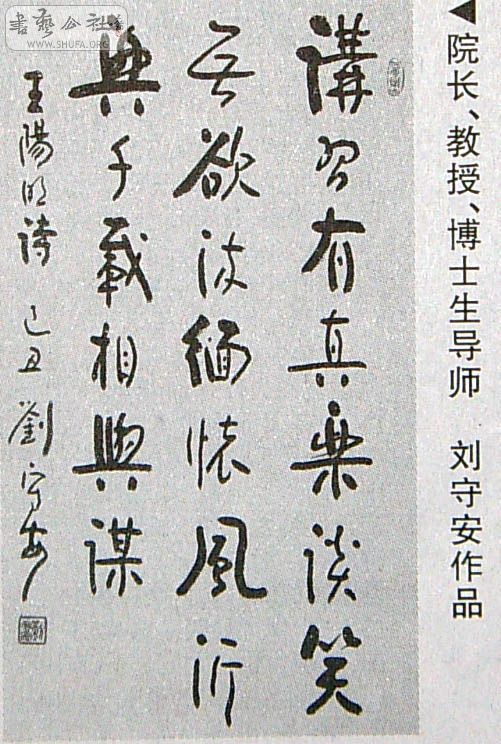 ◀院长、教授、博士生导师 刘守安作品
講習有真楽談笑
无欲流緬懐風沂
興千載相與謀
王陽明詩 己丑 劉守安
書藝公社
WWW.SHUFA.ORG